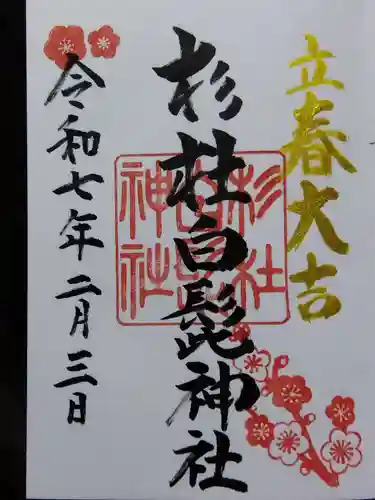 立春大吉
杉杜白髭神社
杉社白髭神社
令和七年二月三日